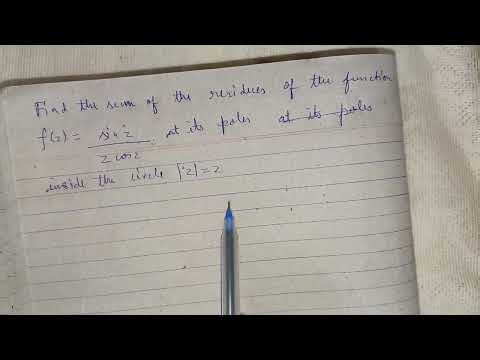 Find the sum of the residues of the function
f(z) = sin z / z cos z at its poles at its poles
inside the circle |z|=2